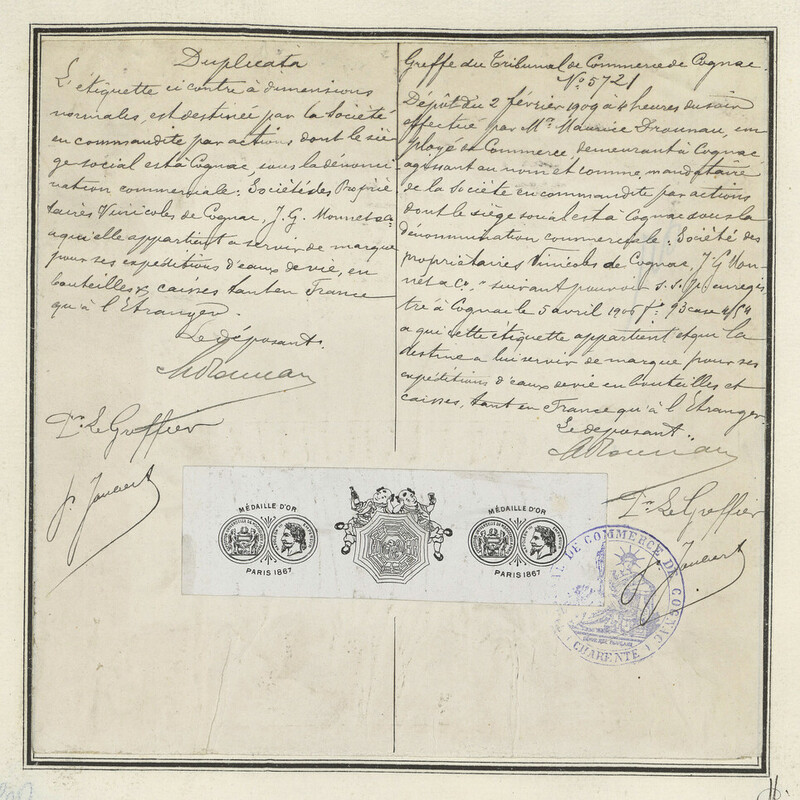 Duplicata
L'étiquette ci contre à dimensions
normales, est destinée par la Société
en commandite par actions dont le siè-
ge social est à Cognac, sous la dénomi-
nation commerciale: Société des Proprié
taires Vinicoles de Cognac, J. G. Monnet & Cie
a qui elle appartient a servir de marque
pour ses expéditions d'eaux de vie, en
bouteilles & caisses tant en France
qu'à l'Etranger.
Le déposant.
Pr Le Greffier
Greffe du Tribunal de Commerce de Cognac
No 5721
Dépôt du 2 février 1909 a 4 heures du soir
effectué par Mr. Maurice Drounau, em
ployé de Commerce, demeurant à Cognac
agissant au nom et comme mandataire
de la Société en commandite par actions
dont le siège social est à Cognac sous la
dénomination commerciale: Société des
propriétaires Vinicoles de Cognac, J G Mon-
net & Co, " suivant pouvoir s.s.p. enregis
tré à Cognac le 5 avril 1906 fo 93 case
a qui cette étiquette appartient et qui la
destine a lui servir de marque pour ses
expéditions d'eaux de vie en bouteilles et
caisses, tant en France qu'à l'Etranger.
Le déposant.
Pr Le Greffier
MÉDAILLE D'OR
PARIS 1867
MÉDAILLE D'OR
PARIS 1867
DE COMMERCE DE COGNAC
CHARENTE